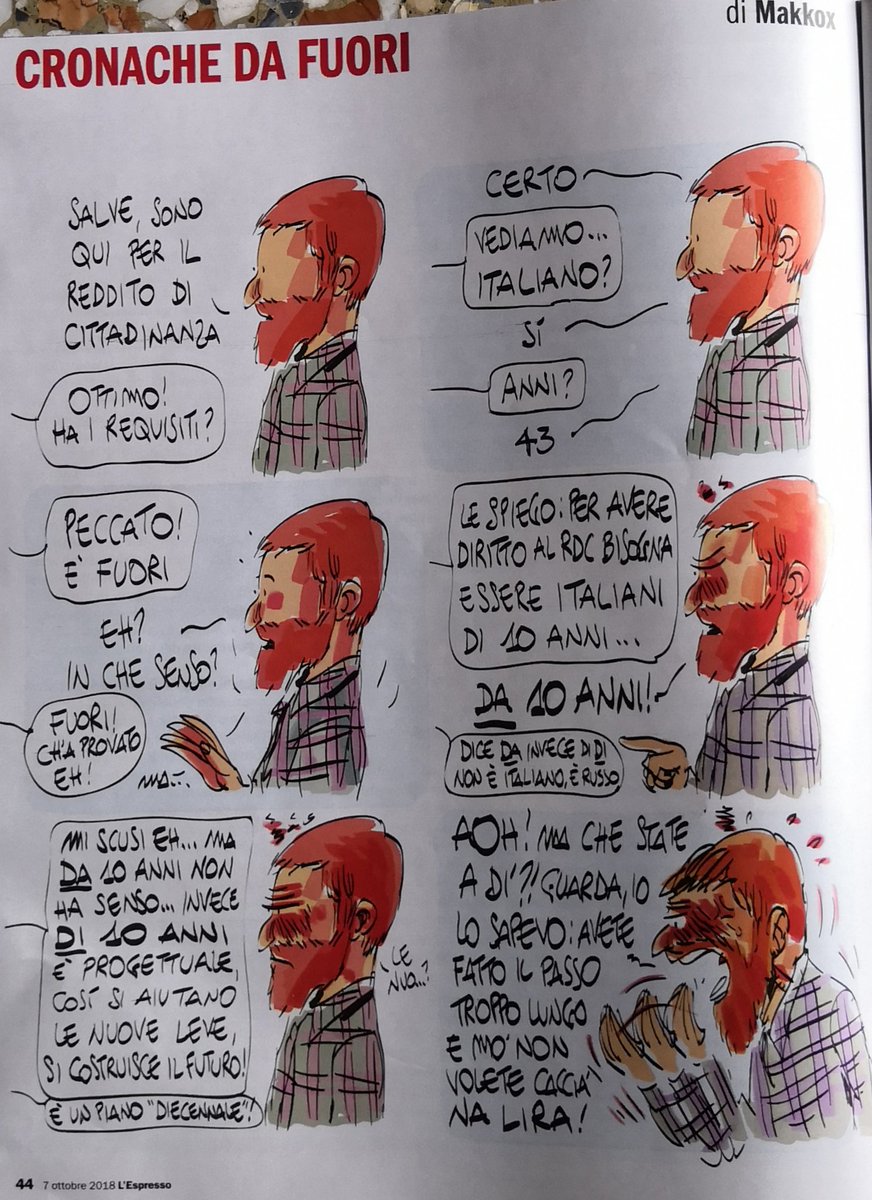 di Makkox
CRONACHE DA FUORI
SALVE, SONO
QUI PER IL
REDDITO DI
CITTADINANZA
OTTIMO!
HA I REQUISITI?
CERTO
VEDIAMO...
ITALIANO?
SÍ
ANNI?
43
PECCATO!
È FUORI
EH?
IN CHE SENSO?
FUORI!
CH'A PROVATO
EH!
MA...
LE SPIEGO: PER AVERE
DIRITTO AL RDC BISOGNA
ESSERE ITALIANI
DI 10 ANNI...
DA 10 ANNI!
DICE DA INVECE DI DI
NON È ITALIANO, È RUSSO
MI SCUSI EH... MA
DA 10 ANNI NON
HA SENSO... INVECE
DI 10 ANNI
È PROGETTUALE,
COSÍ SI AIUTANO
LE NUOVE LEVE,
SI COSTRUISCE IL FUTURO!
LE
NUO...?
È UN PIANO "DIECENNALE"!
AOH! MA CHE STATE
A DÍ'?! GUARDA, IO
LO SAPEVO: AVETE
FATTO IL PASSO
TROPPO LUNGO
E MO' NON
VOLETE CACCIA'
NA LIRA!
44 7 ottobre 2018 L'Espresso